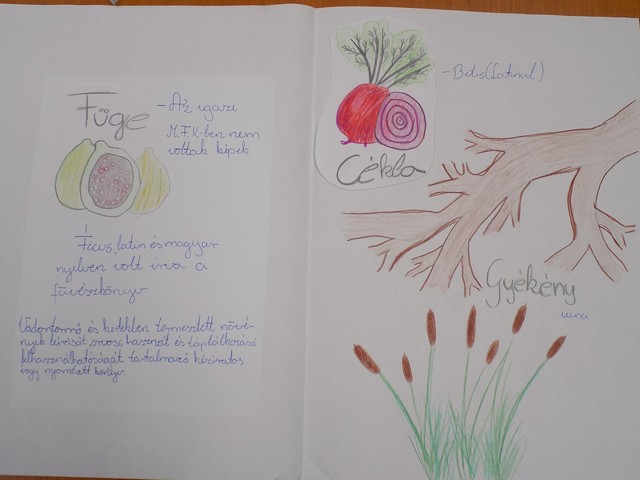 Füge
- Az igazi,
M.F.K-ben nem
voltak képek
Ficus, latin és magyar
nyelven volt írva a
füvészkönyv
Vadontermő és kertekben termesztett növé-
nyek leírását, orvosi hasznát és táplálkozási
felhasználhatóságát tartalmazó kéziratos
vagy nyomtatott könyv.
- Betis (Latinul)
Cékla
Gyékény